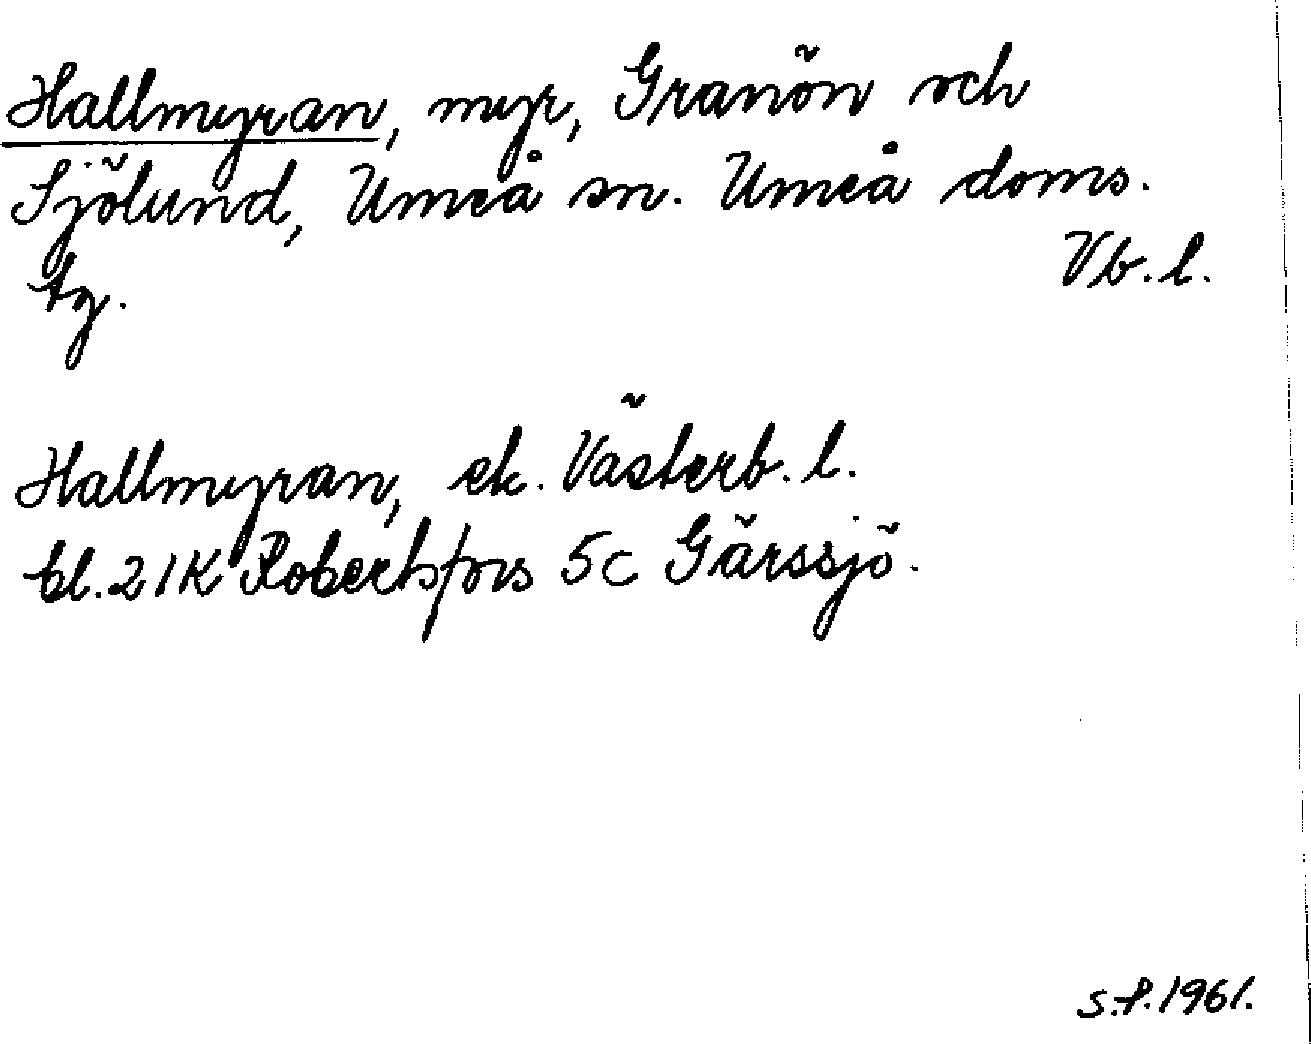 Hallmyran, myr, Granön och
Sjölund, Umeå sn. Umeå doms.
tg. Vb. l.
Hallmyran, ek. Västerb. l.
bl. 21K Robertsfors 5c Gärssjö.
S.P. 1961.